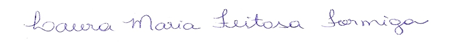 Laura Maria Feitosa Formiga